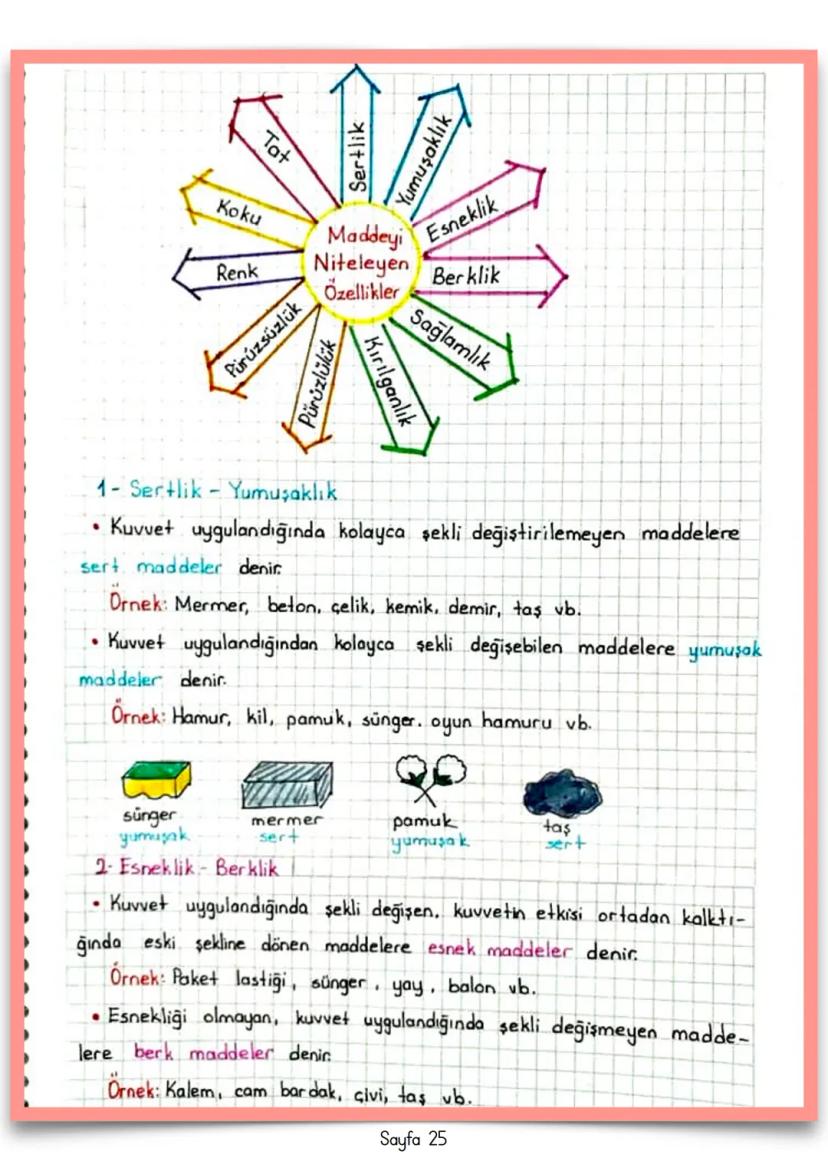 Sertlik
Yumuşaklık
Tat
Esneklik
Koku
Maddeyi
Niteleyen
Özellikler
Berklik
Renk
Sağlamlık
Pürüzsüzlük
Pürüzlülük
Kırılganlık
1- Sertlik - Yumuşaklık
• Kuvvet uygulandığında kolayca şekli değiştirilemeyen maddelere
sert maddeler denir.
Örnek: Mermer, beton, çelik, kemik, demir, taş vb.
• Kuvvet uygulandığından kolayca şekli değişebilen maddelere yumuşak
maddeler denir.
Örnek: Hamur, kil, pamuk, sünger. oyun hamuru vb.
sünger mermer pamuk taş
yumuşak sert yumuşak sert
2- Esneklik - Berklik
• Kuvvet uygulandığında şekli değişen, kuvvetin etkisi ortadan kalktı-
ğında eski şekline dönen maddelere esnek maddeler denir.
Örnek: Paket lastiği, sünger, yay, balon vb.
• Esnekliği olmayan, kuvvet uygulandığında şekli değişmeyen madde-
lere berk maddeler denir
Örnek: Kalem, cam bardak, çivi, taş vb.
Sayfa 25